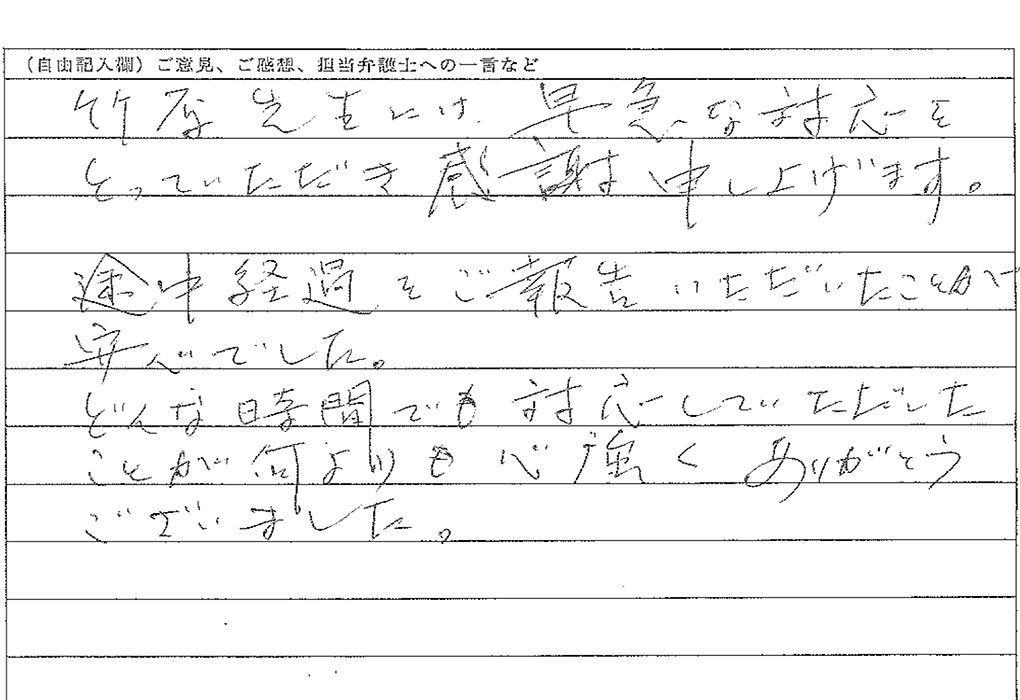 （自由記入欄）ご意見、ご感想、担当弁護士への一言など
竹原先生には、早急な対応を
とっていただき感謝申し上げます。
途中経過をご報告いただいたことが
安心でした。
どんな時間でも対応していただいた
ことが何よりも心強くありがとう
ございました。